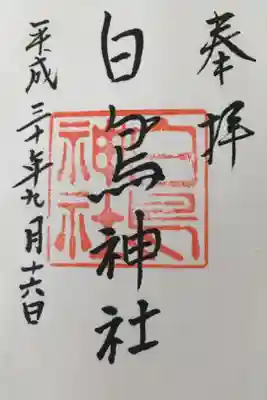 奉拝
白鳥神社
平成三十年九月十六日
白鳥神社